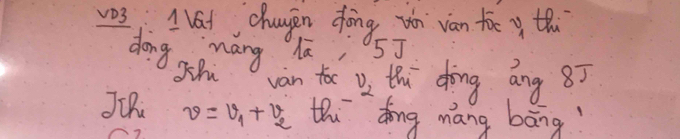 VD3: 1 Vật chuyển động với vận tốc v₁ thì
động năng là 5J
Khi vận tốc v₂ thì động ảng 8J
Khi v = v₁ + v₂ thì động năng bằng